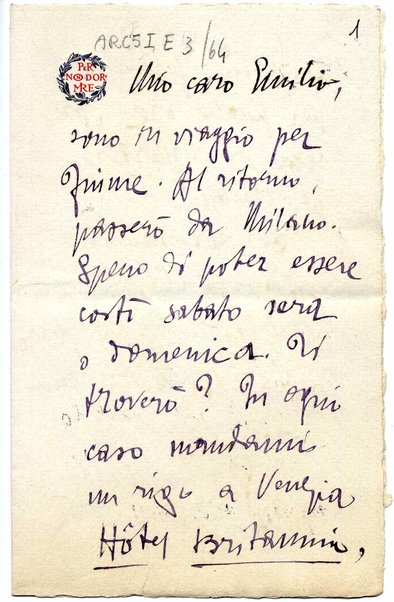 1
ARC5I E 3/64
PER
NON DOR
MIRE
Mio caro Emilio,
sono in viaggio per
Fiume. Al ritorno,
passerò da Milano.
Spero di poter essere
costì sabato sera
o domenica. Ti
troverò? In ogni
caso mandami
un rigo a Venezia
Hôtel Britannia,